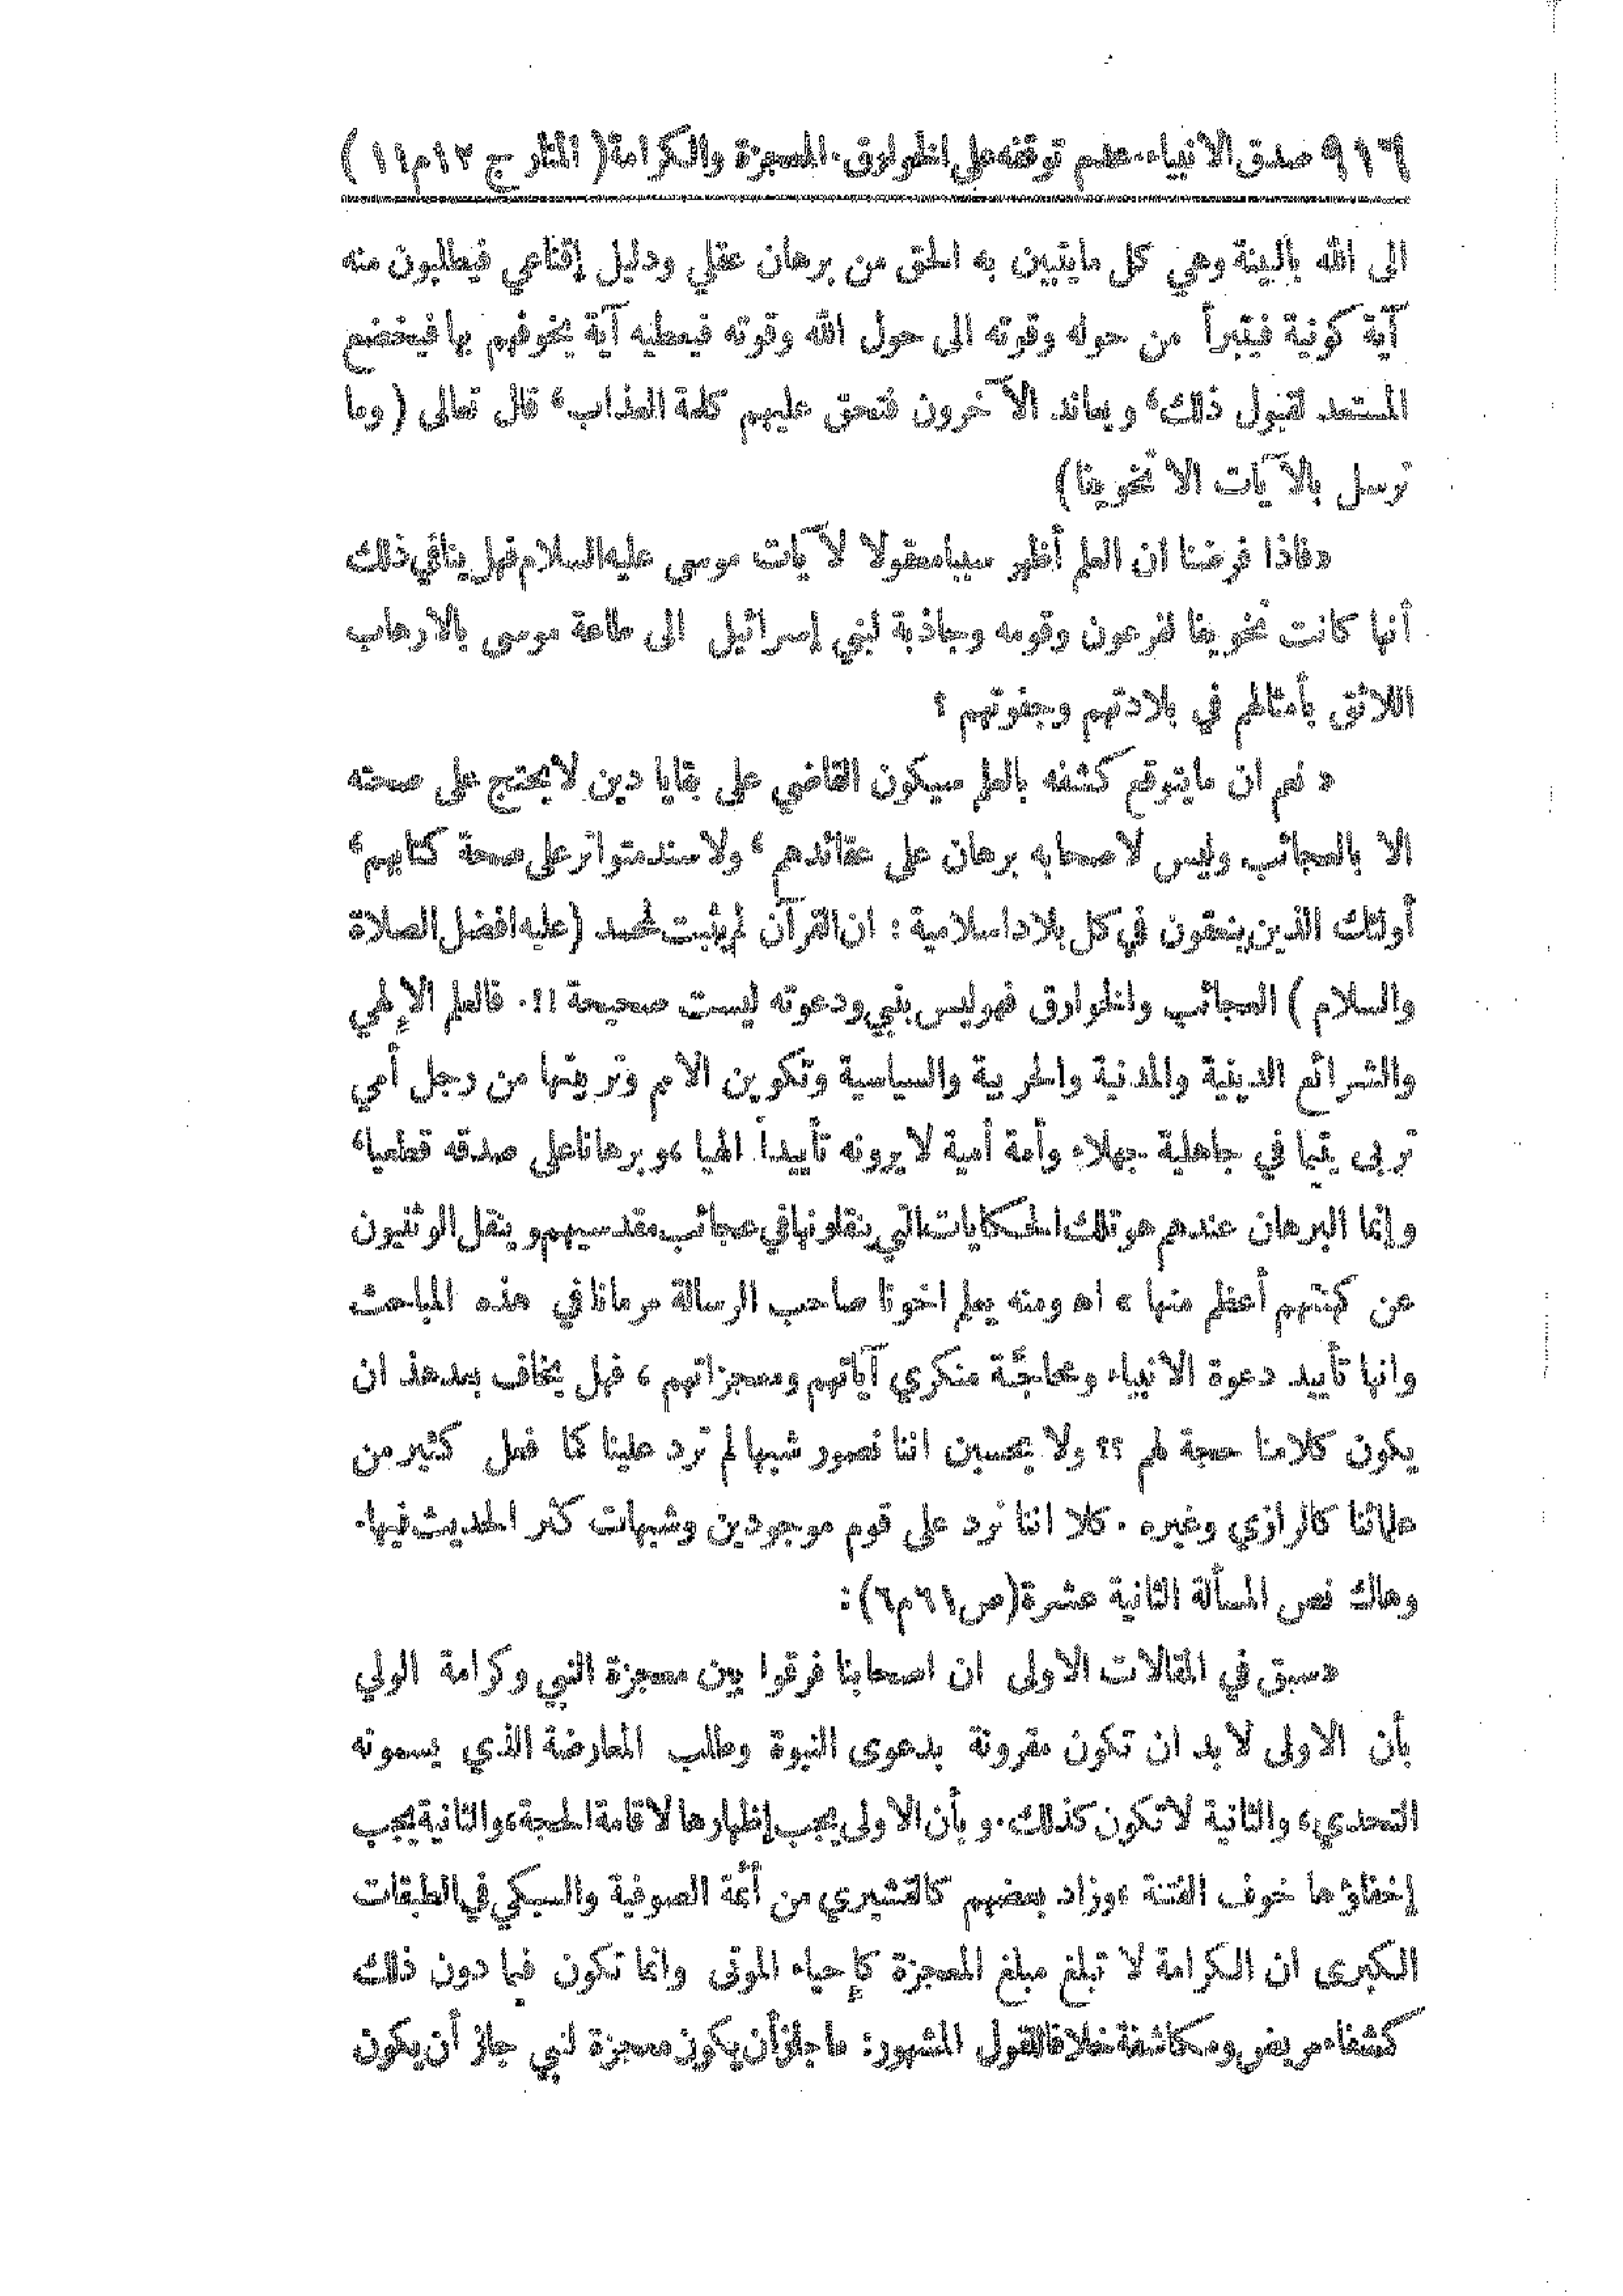 ٩١٦ صدق الانبياء. عدم توقفه على الخوارق. المعجزة والكرامة ( المنار ج ١٢ م ١١ )
الى الله بالبينة وهي كل مايتبين به الحق من برهان عقلي ودليل إقناعي فيطلبون منه
آية كونية فيتبرأ من حوله وقوته الى حول الله وقوته فيعطيه آية يخوفهم بها فيخضع
المستعد لقبول ذلك، ويعاند الآخرون فتحق عليهم كلمة العذاب، قال تعالى ( وما
نرسل بالآيات الا تخويفا)
«فاذا فرضنا ان العلم أظهر سببا معقولا لآيات موسى عليه السلام فهل ينافي ذلك
أنها كانت تخويفا لفرعون وقومه وجاذبة لبني إسرائيل الى طاعة موسى بالارهاب
اللائق بأمثالهم في بلادتهم وجفوتهم ؟
« نعم ان مايتوقع كشفه بالعلم سيكون القاضي على بقايا دين لايحتج على صحته
الا بالعجائب وليس لاصحابه برهان على عقائدهم ، ولا سند متواتر على صحة كتابهم،
أولئك الذين ينعقون في كل بلاد اسلامية : ان القرآن لم يثبت لمحمد (عليه افضل الصلاة
والسلام ) العجائب والخوارق فهو ليس بنبي ودعوته ليست صحيحة !!. فالعلم الإلهي
والشرائع الدينية والمدنية والحربية والسياسية وتكوين الامم وتربيتها من رجل أمي
تربى يتيما في جاهلية جهلاء وأمة أمية لا يرونه تأييداً الهيا ، وبرهانا على صدقه قطعيا،
وإنما البرهان عندهم هو تلك الحكايات التي ينقلونها في عجائب مقدسيهم وينقل الوثنيون
عن كهنتهم أعظم منها » اه ومنه يعلم اخونا صاحب الرسالة مرمانا في هذه المباحث
وانها تأييد دعوة الانبياء ومحاجّة منكري آياتهم ومعجزاتهم ، فهل يخاف بعد هذ ان
يكون كلامنا حجة لهم ؟؟ ولا تحسبن اننا نصور شبها لم ترد علينا كما فعل كثير من
علمائنا كالرازي وغيره . كلا اننا نرد على قوم موجودين وشبهات كثر الحديث فيها.
وهاك نص المسألة الثانية عشرة (ص٦١م٦) :
«سبق في المقالات الاولى ان اصحابنا فرقوا بين معجزة النبي وكرامة الولي
بأن الاولى لا بد ان تكون مقرونة بدعوى النبوة وطلب المعارضة الذي يسمونه
التحدي، والثانية لا تكون كذلك. وبأن الاولى يجب إظهارها لاقامة الحجة، والثانية يجب
إخفاؤها خوف الفتنة ، وزاد بعضهم كالقشيري من أئمة الصوفية والسبكي في الطبقات
الكبرى ان الكرامة لا تبلغ مبلغ المعجزة كإحياء الموتى وانما تكون فيما دون ذلك
كشفاء مريض ومكاشفة خلافا للقول المشهور: ما جاز أن يكون معجزة لنبي جاز أن يكون